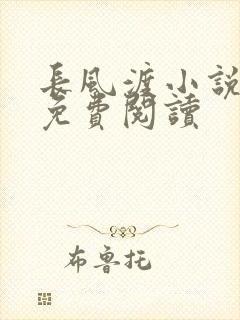 長風渡小說
免費閱讀
布魯托